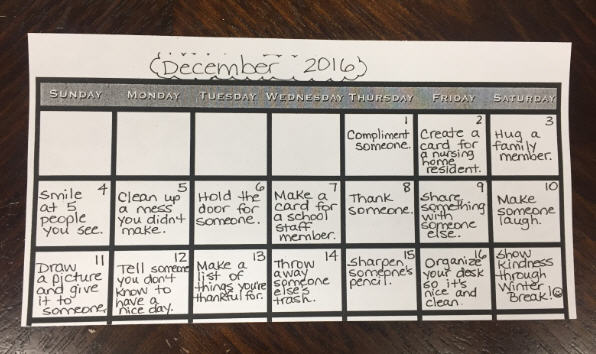 December 2016
SUNDAY MONDAY TUESDAY WEDNESDAY THURSDAY FRIDAY SATURDAY
1
Compliment
someone.
2
Create a
card for
a nursing
home
resident.
3
Hug a
family
member.
4
Smile
at 5
people
you see.
5
Clean up
a mess
you didn't
make.
6
Hold the
door for
someone.
7
Make a
card for
a school
staff
member.
8
Thank
someone.
9
Share
something
with
someone
else.
10
Make
someone
laugh.
11
Draw
a picture
and give
it to
someone.
12
Tell someone
you don't
know to
have a
nice day.
13
Make a
list of
things you're
thankful for.
14
Throw
away
someone
else's
trash.
15
Sharpen
someone's
pencil.
16
Organize
your desk
so it's
nice and
clean.
Show
kindness
through
Winter
Break!